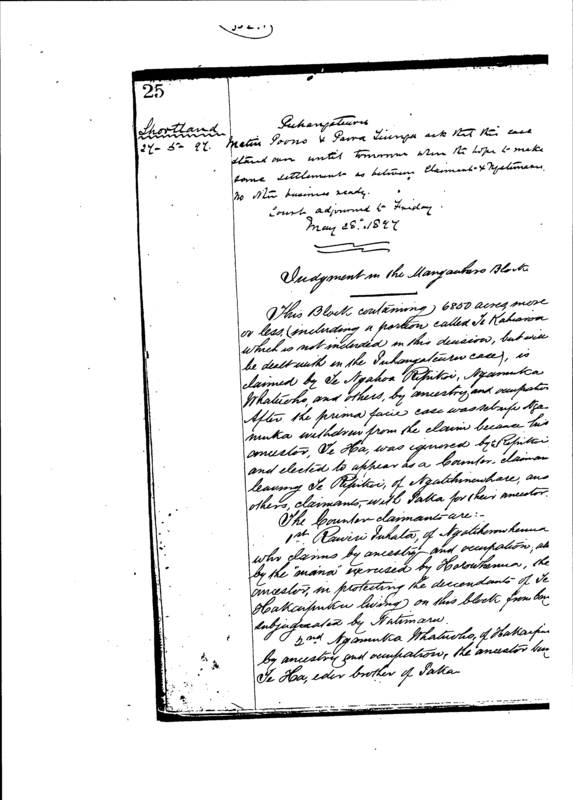 25
Shortland
27-5-97.
Puhangateuru
Poono & Paora Tiunga ask that this case
stand over until tomorrow when they hope to make
some settlement as between Claimants &
No other business ready.
Court adjourned to Friday.
May 28th 1897
Judgment in the Mangakara Block
This Block containing 6850 acres more
or less, (including a portion called Te Kaharoa
which is not included in this decision, but will
be dealt with in the Puhangateuru case), is
claimed by Te Ngahoa Repitoi, Ngamuka
Whatuoho, and others, by ancestry and occupation
After the prima facie case was set up Nga-
muka withdrew from the claim because his
ancestor, Te Ha, was ignored by Repitoi
and elected to appear as a Counter-claiman
leaving Te Repitoi, of and
others, claimants, with Patka for their ancestor.
The Counter-claimants are:-
1st Rawiri Tuhata, of
who claims by ancestry and occupation, als
by the "mana" exercised by the
ancestor, in protecting the descendants of Te
living on this block, from bein
subjugated by
2nd Ngamuka Whatuoho, of
by ancestry and occupation, the ancestor bein
Te Ha, elder brother of Patka